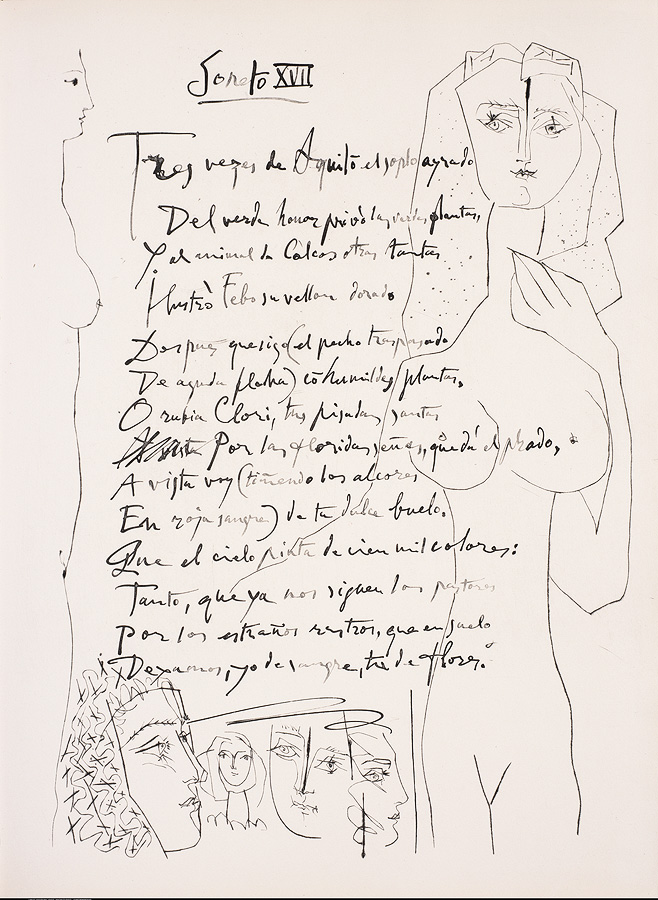 Soneto XVII
Tres vezes de Aquilõ el soplo ayrado
Del verde honor privò las verdes plantas,
Y al animal de Colcos otras tantas
Ilustrò Febo su vellon dorado
Despues que sigo (el pecho traspasado
De aguda flecha) cõ humildes plantas,
O rubia Clori, tus pisadas santas
Por las floridas señas, que da el prado,
A vista voy (tiñendo los alcores
En roja sangre) de tu dulce buelo.
Que el cielo pinta de cien mil colores:
Tanto, que ya nos siguen los pastores
Por los estraños rastros, que en suelo
Dexamos, yo de sangre, tu de flores.